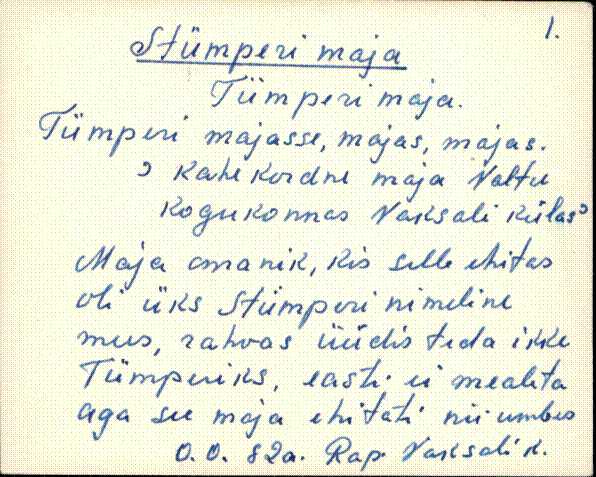 1.
Stümperi maja
Tümperi maja.
Tümperi majasse, majas, majas.
? Kahekordne maja Valtu
kogukonnas Vaksali külas?
Maja omanik, kis selle ehitas
oli üks Stümperi nimeline
mees, rahvas üüdis teda ikke
Tümperiks, easti ei mealeta
aga see maja ehitati nii umbes
O.O. 82a. Rap. Vaksali k.